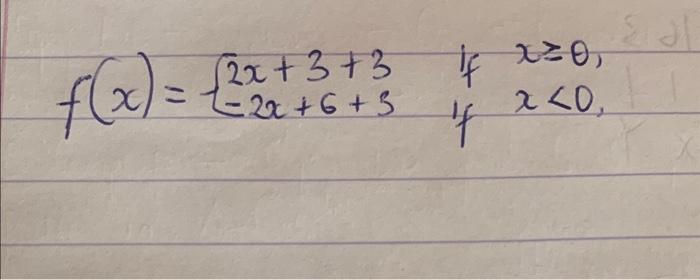 f(x) = { 2x + 3 + 3 if x ≥ 0,
-2x + 6 + 3 if x < 0,